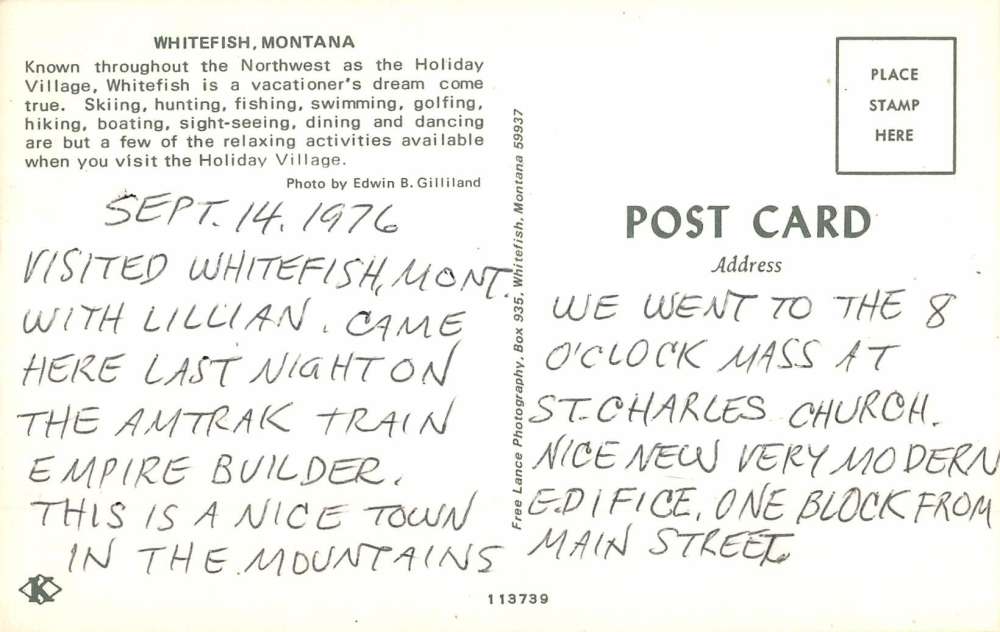 WHITEFISH, MONTANA
Known throughout the Northwest as the Holiday
Village, Whitefish is a vacationer's dream come
true. Skiing, hunting, fishing, swimming, golfing,
hiking, boating, sight-seeing, dining and dancing
are but a few of the relaxing activities available
when you visit the Holiday Village.
Photo by Edwin B. Gilliland
SEPT. 14. 1976
VISITED WHITEFISH, MONT.
WITH LILLIAN. CAME
HERE LAST NIGHT ON
THE AMTRAK TRAIN
EMPIRE BUILDER.
THIS IS A NICE TOWN
IN THE MOUNTAINS
K
Free Lance Photography, Box 935, Whitefish, Montana 59937
113739
PLACE
STAMP
HERE
POST CARD
Address
WE WENT TO THE 8
O'CLOCK MASS AT
ST. CHARLES CHURCH.
NICE NEW VERY MODERN
EDIFICE, ONE BLOCK FROM
MAIN STREET.